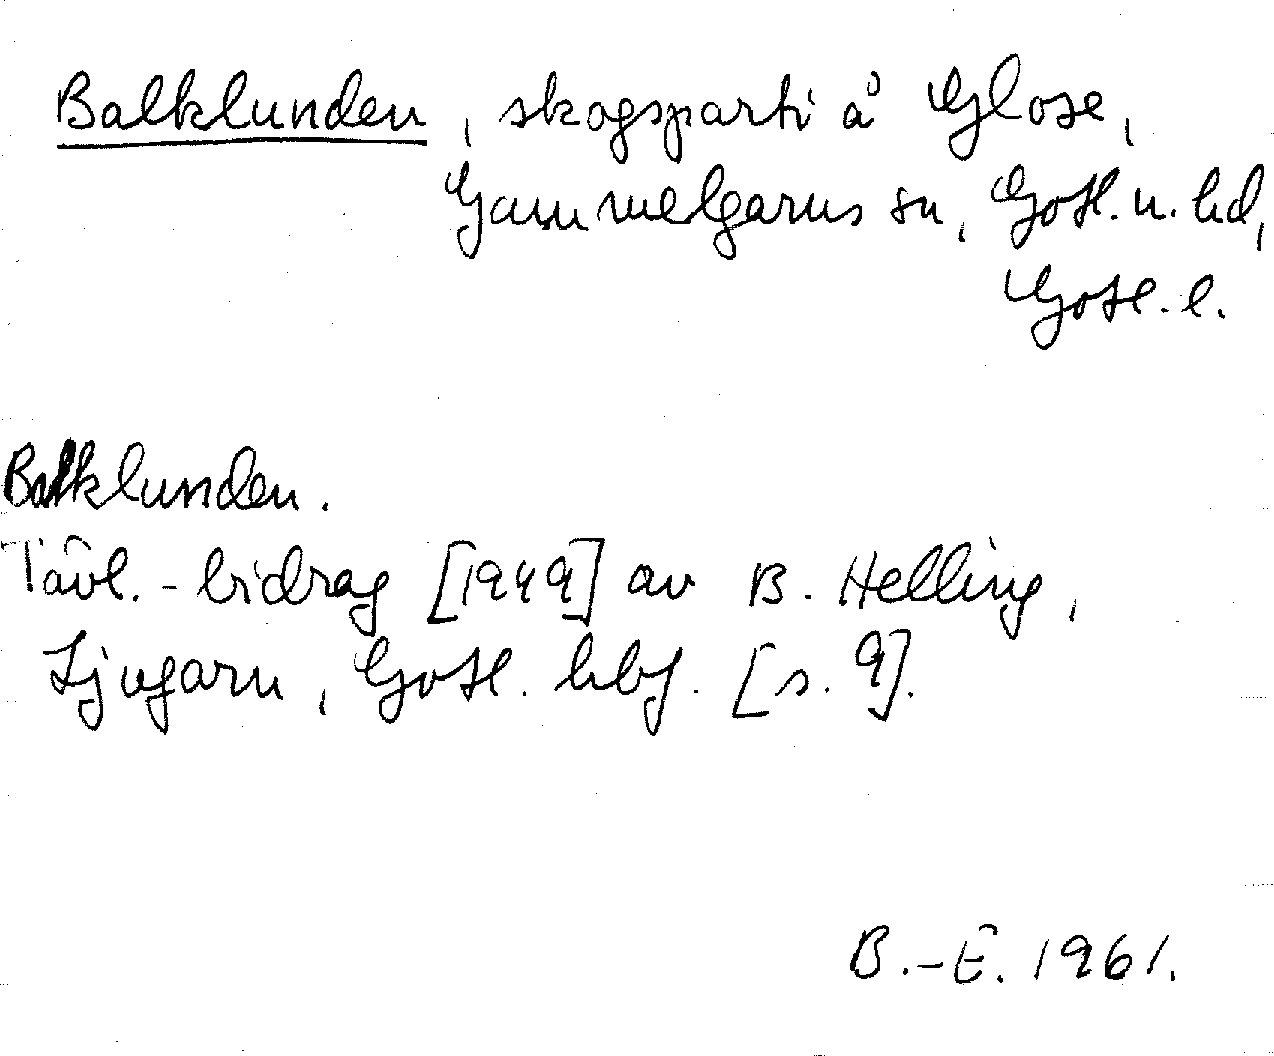 Balklunden, skogsparti å Glose,
Gammelgarns sn, Gotl. n. hd,
Gotl. l.
Balklunden.
Tävl.-bidrag [1949] av B. Helling,
Ljugarn, Gotl. hbf. [s. 9].
B.-E. 1961.